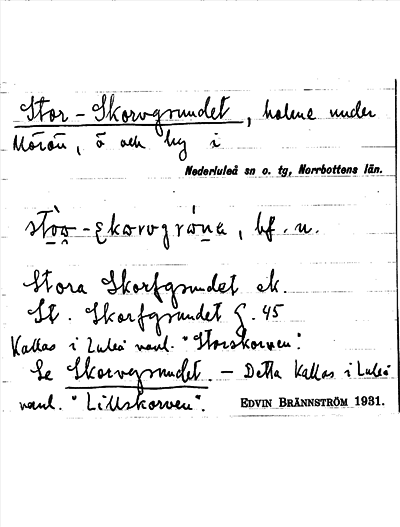 Stor-Skorvgrundet, holme under
Mörön, ö och by i
Nederluleå sn o. tg, Norrbottens län.
bf. n.
Stora Skorfgrundet ek.
St. Skorfgrundet G. 45
Kallas i Luleå vanl. "Storskorven".
Se Skorvgrundet. – Detta kallas i Luleå
vanl. "Lillskorven". EDVIN BRÄNNSTRÖM 1931.